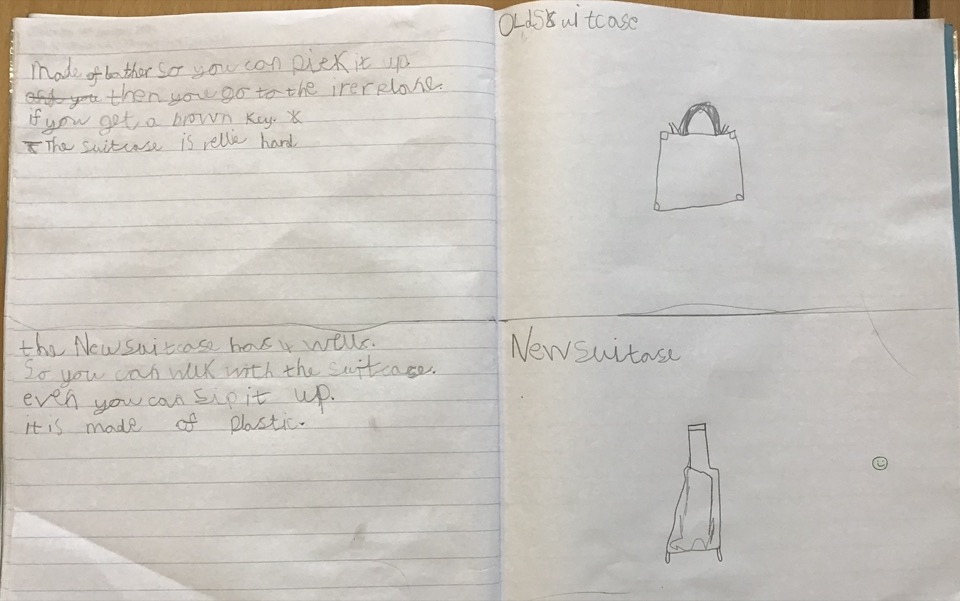 OLdSuitcase
made of lather so you can pick it up
and you then you go to the irerplane.
if you get, a brown key. *
* The suitcase is rellie hard
the New suitcase has 4 wells.
So you can welk with the suitcase.
even you can sip it up.
it is made of plastic.
Newsuitase